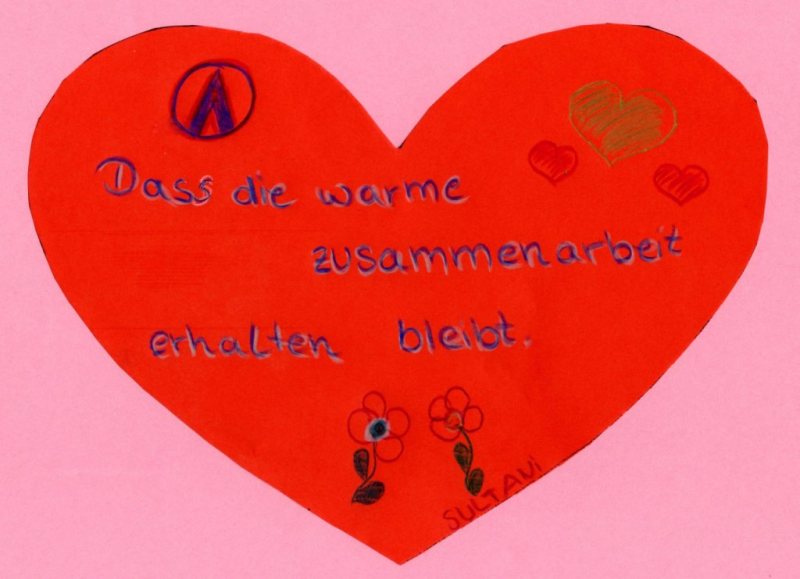 Dass die warme
zusammenarbeit
erhalten bleibt.
SULTANi